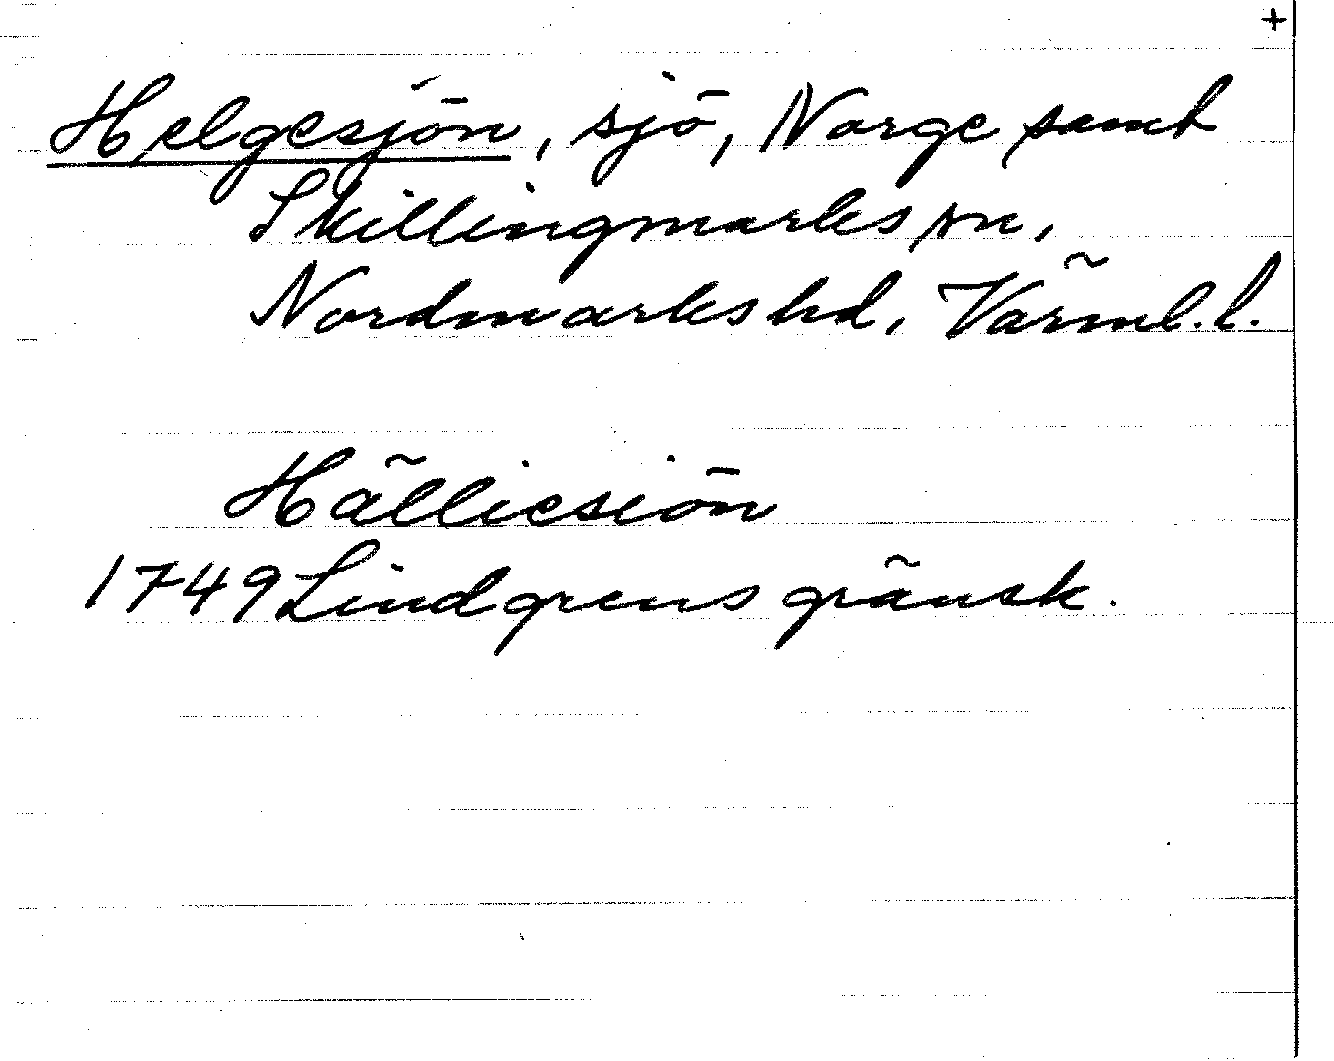 +
Helgesjön, sjö, Norge samt
Skillingmarks sn,
Nordmarks hd, Värml. l.
Hälliesiön
1749 Lindgrens gränsk.